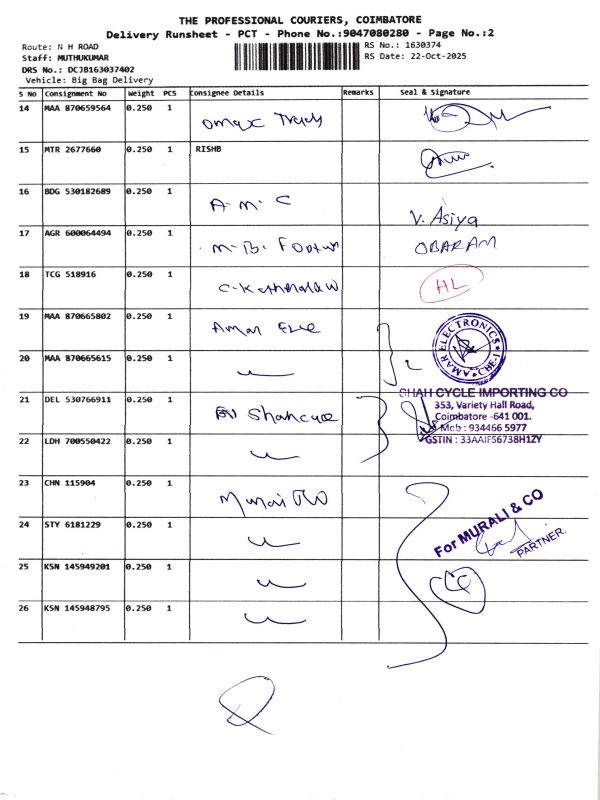 THE PROFESSIONAL COURIERS, COIMBATORE
Delivery Runsheet - PCT - Phone No.:9047080280 - Page No.:2
Route: N H ROAD
RS No.: 1630374
Staff: MUTHUKUMAR
RS Date: 22-Oct-2025
DRS No.: DCJB163037402
Vehicle: Big Bag Delivery
S No Consignment No Weight PCS Consignee Details Remarks Seal & Signature
14 MAA 870659564 0.250 1 Omax
15 MTR 2677660 0.250 1 RISHB
16 BDG 530182689 0.250 1 A. M. C
V. Asiya
17 AGR 600064494 0.250 1 M. B.
OBARAM
18 TCG 518916 0.250 1
HL
19 MAA 870665802 0.250 1 Amar
AMAR ELECTRONICS
CBE-1
20 MAA 870665615 0.250 1
21 DEL 530766911 0.250 1
SHAH CYCLE IMPORTING CO
353, Variety Hall Road,
Coimbatore -641 001.
Mob : 934466 5977
GSTIN : 33AAIFS6738H1ZY
22 LDH 700550422 0.250 1
23 CHN 115904 0.250 1
For MURALI & CO
PARTNER.
24 STY 6181229 0.250 1
25 KSN 145949201 0.250 1
26 KSN 145948795 0.250 1